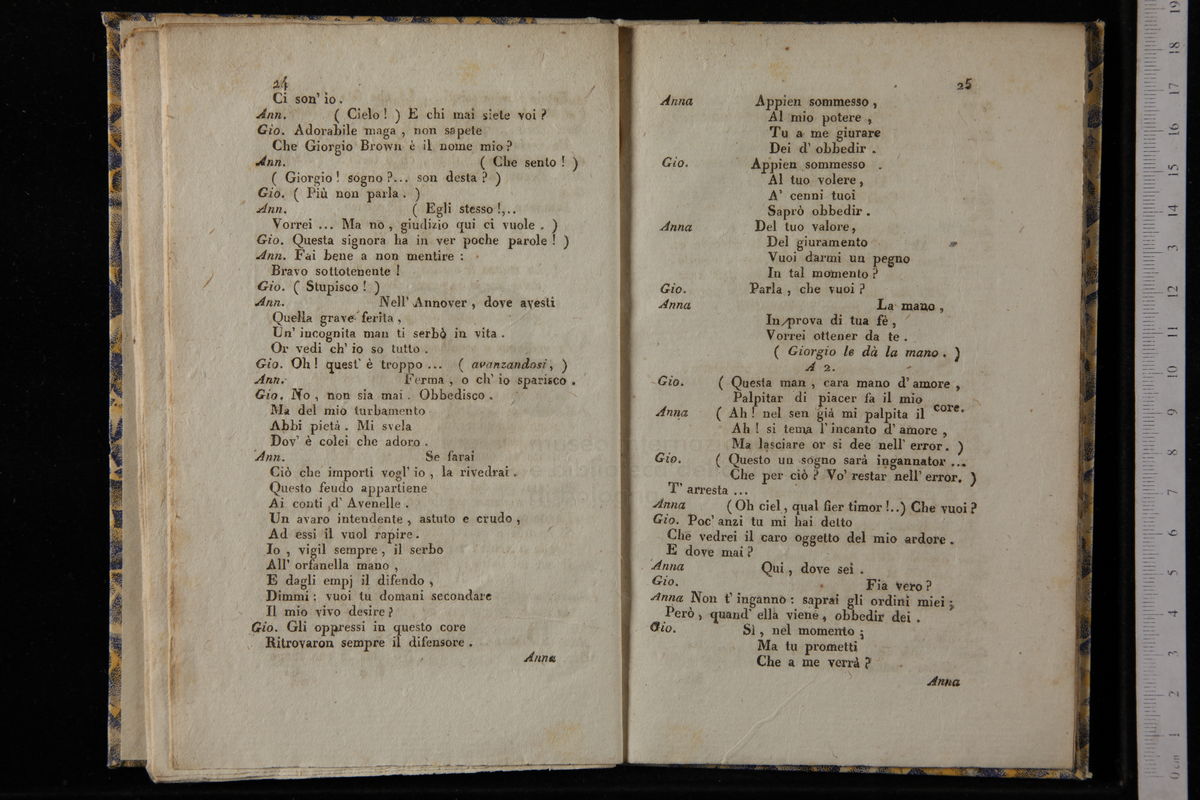 24
Ci son' io.
Ann. ( Cielo ! ) E chi mai siete voi ?
Gio. Adorabile maga , non sapete
Che Giorgio Brown è il nome mio ?
Ann. ( Che sento ! )
( Giorgio ! sogno ?... son desta ? )
Gio. ( Più non parla . )
Ann. ( Egli stesso !,..
Vorrei ... Ma no , giudizio qui ci vuole . )
Gio. Questa signora ha in ver poche parole ! )
Ann. Fai bene a non mentire :
Bravo sottotenente !
Gio. ( Stupisco ! )
Ann. Nell' Annover , dove avesti
Quella grave ferita ,
Un' incognita man ti serbò in vita .
Or vedi ch' io so tutto .
Gio. Oh ! quest' è troppo ... ( avanzandosi, )
Ann. Ferma , o ch' io sparisco .
Gio. No , non sia mai . Obbedisco .
Ma del mio turbamento
Abbi pietà . Mi svela
Dov' è colei che adoro .
Ann. Se farai
Ciò che importi vogl' io , la rivedrai .
Questo feudo appartiene
Ai conti d' Avenelle .
Un avaro intendente , astuto e crudo ,
Ad essi il vuol rapire .
Io , vigil sempre , il serbo
All' orfanella mano ,
E dagli empj il difendo ,
Dimmi : vuoi tu domani secondare
Il mio vivo desire ?
Gio. Gli oppressi in questo core
Ritrovaron sempre il difensore .
Anna
25
Anna Appien sommesso ,
Al mio potere ,
Tu a me giurare
Dei d' obbedir .
Gio. Appien sommesso .
Al tuo volere ,
A' cenni tuoi
Saprò obbedir .
Anna Del tuo valore ,
Del giuramento
Vuoi darmi un pegno
In tal momento ?
Gio. Parla , che vuoi ?
Anna La mano ,
In prova di tua fè ,
Vorrei ottener da te .
( Giorgio le dà la mano . )
A 2.
Gio. ( Questa man , cara mano d' amore ,
Palpitar di piacer fa il mio
Anna ( Ah ! nel sen già mi palpita il core.
Ah ! si tema l' incanto d' amore ,
Ma lasciare or si dee nell' error . )
Gio. ( Questo un sogno sarà ingannator ...
Che per ciò ? Vo' restar nell' error. )
T' arresta ...
Anna ( Oh ciel , qual fier timor !..) Che vuoi ?
Gio. Poc' anzi tu mi hai detto
Che vedrei il caro oggetto del mio ardore .
E dove mai ?
Anna Qui , dove sei .
Gio. Fia vero ?
Anna Non t' inganno : saprai gli ordini miei ;
Però , quand' ella viene , obbedir dei .
Gio. Sì , nel momento ;
Ma tu prometti
Che a me verrà ?
Anna